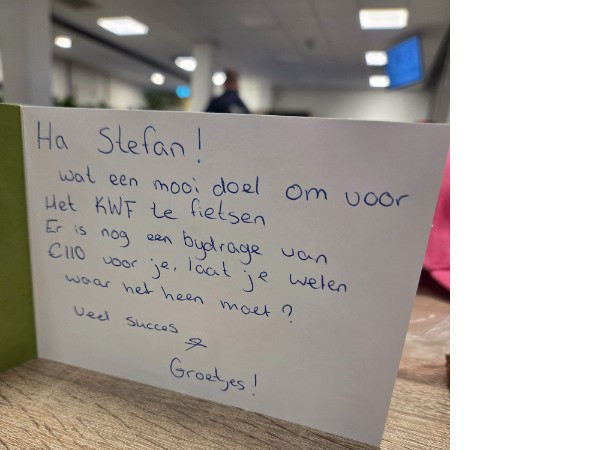 Ha Stefan!
wat een mooi doel om voor
Het KWF te fietsen
Er is nog een bydrage van
€110 voor je. laat je weten
waar het heen moet?
Veel succes
Groetjes!